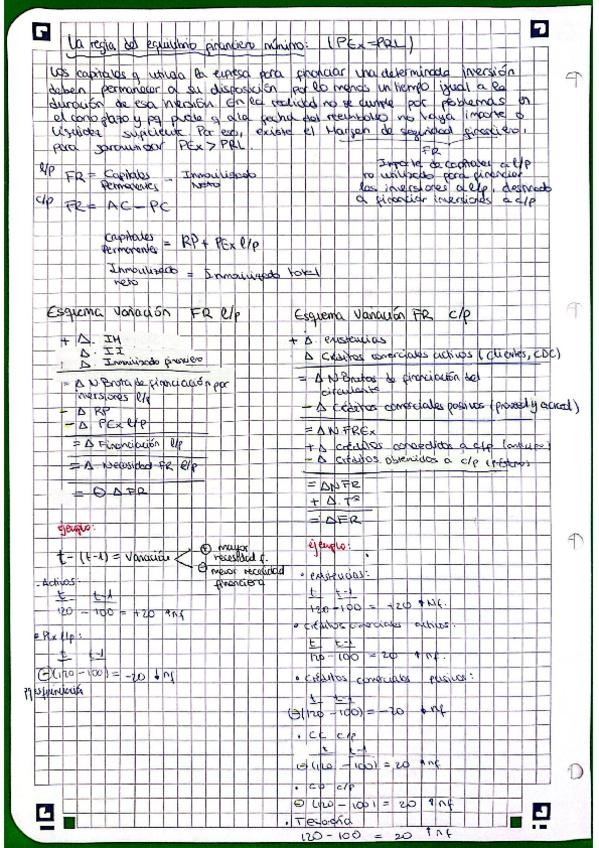 La regla del equilibrio financiero mínimo: (PEx=PRL)
Los capitales q utiliza la empresa para financiar una determinada inversión
deben permanecer a su disposición por lo menos un tiempo igual a la
duración de esa inversión. En la realidad no se cumple por problemas en
el corto plazo y pq puede q a la fecha del reembolso no haya importe o
liquidez suficiente. Por eso, existe el Margen de seguridad financiero,
para garantizar PEx > PRL.
FR
Importe de capitales a l/p
no utilizado para financiar
las inversiones a l/p, destinado
a financiar inversiones a c/p
l/p FR = Capitales Permanentes - Inmovilizado Neto
c/p FR = AC - PC
Capitales Permanentes = RP + PEx l/p
Inmovilizado neto = Inmovilizado total
Esquema Variación FR l/p
+ Δ. IM
Δ. II
Δ. Inmovilizado financiero
= Δ N Bruta de financiación por
inversiones l/p
- Δ RP
- Δ PEx l/p
= Δ Financiación l/p
= Δ Necesidad FR l/p
= ⊖ Δ FR
ejemplo:
t - (t-1) = Variación
⊕ mayor necesidad f.
⊖ menor necesidad financiera
- Activos:
t t-1
120 - 100 = +20 ↑nf
• PEx l/p:
t t-1
⊖(120 - 100) = -20 ↓nf
Esquema Variación FR c/p
+ Δ existencias
Δ Créditos comerciales activos (clientes, CDC)
= Δ N Brutas de financiación del
circulante
- Δ Créditos comerciales pasivos (proveed y acreed)
= Δ NFREx
+ Δ créditos concedidos a c/p
- Δ Créditos obtenidos a c/p
= Δ NFR
+ Δ. Tª
= Δ FR
ejemplo:
• existencias:
t t-1
+120 - 100 = +20 ↑Nf.
• Créditos comerciales activos:
t t-1
120 - 100 = 20 ↑nf.
• Créditos comerciales pasivos:
t t-1
⊖(120 - 100) = -20 ↓nf
• CC c/p
t t-1
⊖(120 - 100) = 20 ↑nf
• CO c/p
⊖(120 - 100) = 20 ↑nf
• Tesorería
120 - 100 = 20 ↑nf